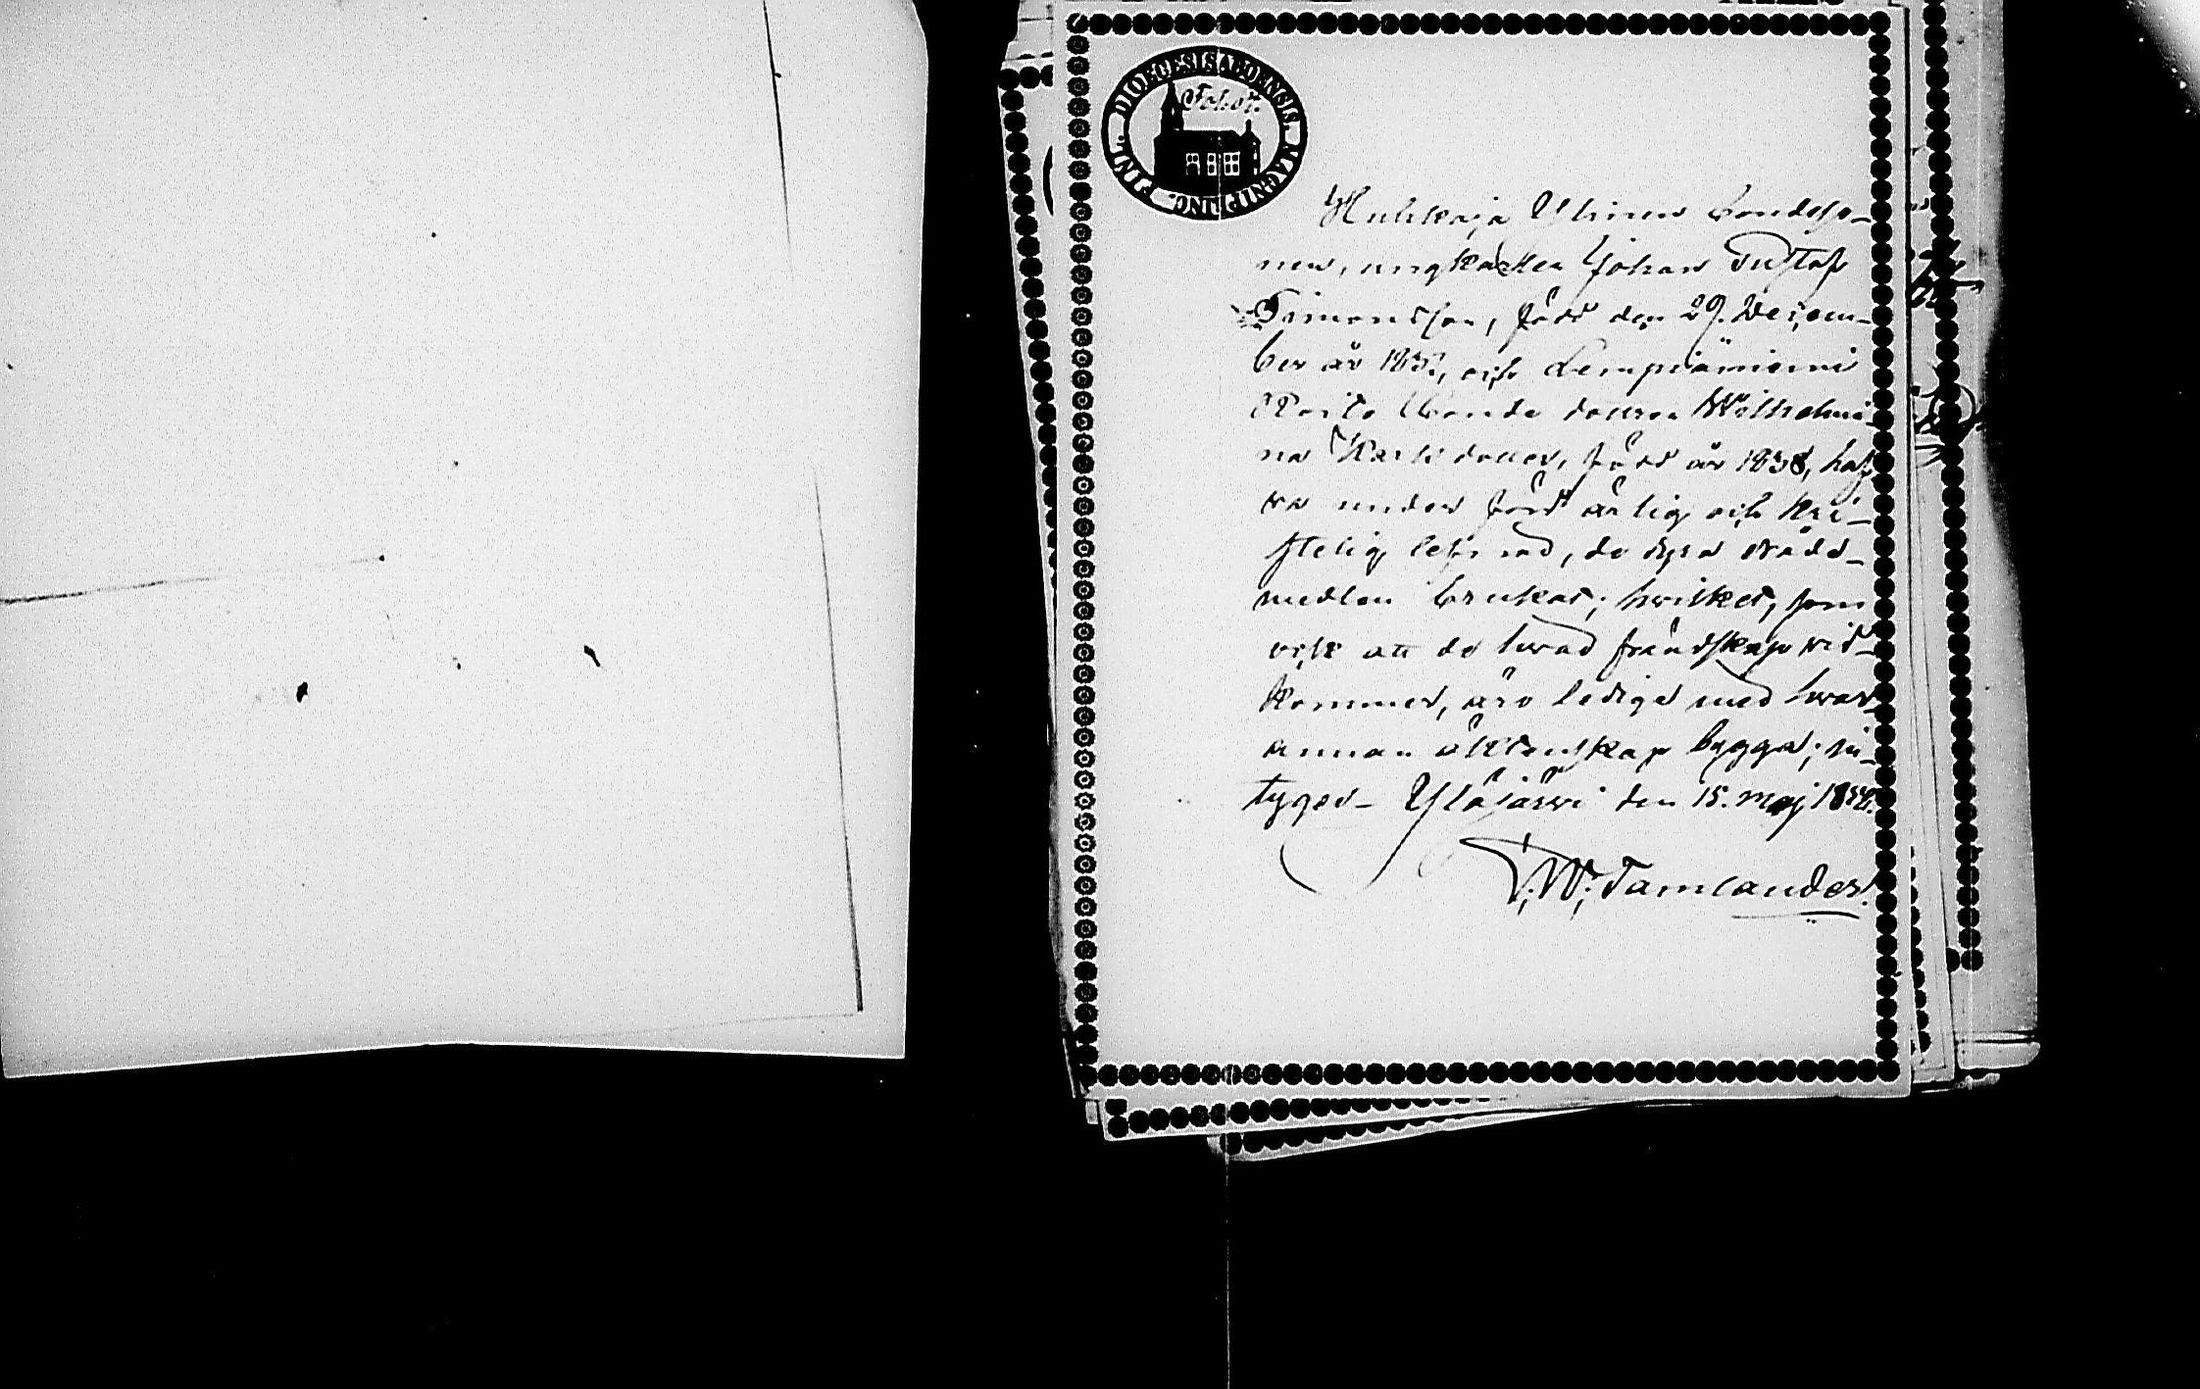 DIOECESIS ABOENSIS. MAGNI PRINC. FINL.
Huhkaja Ylinen bondeso-
nen, ungkarlen Johan Gustaf
Simonsson, född den 29. Decem-
ber år och Lempiäniemi
bonde dottren Wilhelmi-
na Karlsdotter, född år 1838, haf-
va under fört ärlig och kri-
stelig lefnad, de dyra nåde-
medlen brukat; hvilket, som
ock att de hvad frändskap vid-
kommer, äro lediga med hvar-
annan äktenskap bygga; in-
tygar Ylöjärvi den 15. maj
F. W. Tamlander.